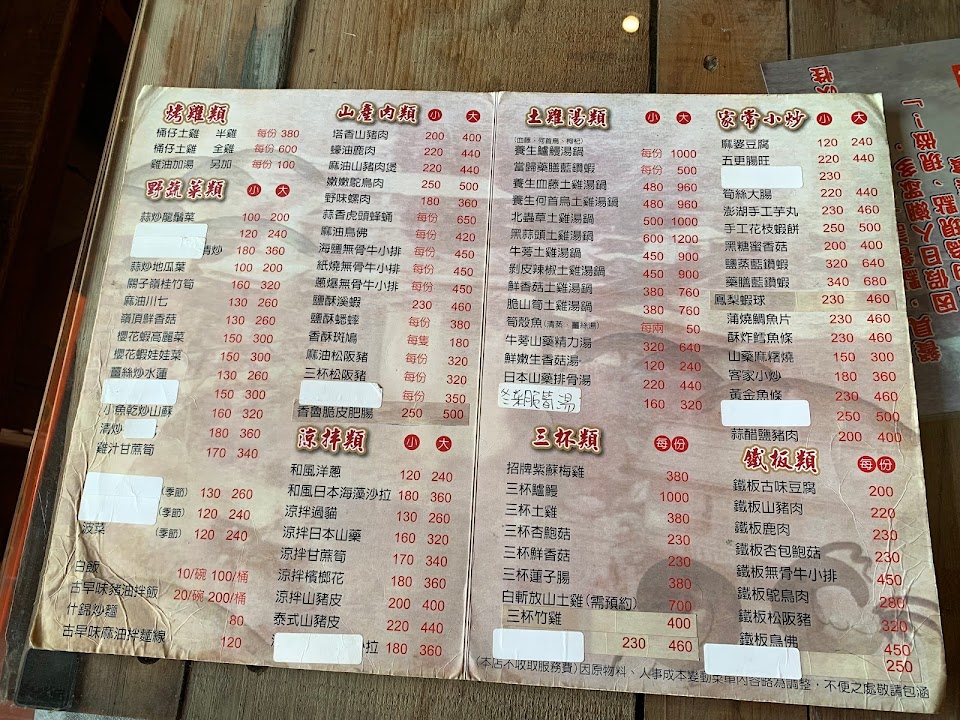 烤雞類
桶仔土雞 半雞 每份 380
桶仔土雞 全雞 每份 600
雞油加湯 另加 每份 100
野蔬菜類 小 大
蒜炒龍鬚菜 100 200
120 240
清炒 180 360
蒜炒地瓜葉 100 200
關子嶺桂竹筍 160 320
麻油川七 130 260
嶺頂鮮香菇 130 260
櫻花蝦高麗菜 150 300
櫻花蝦娃娃菜 150 300
薑絲炒水蓮 130 260
150 300
小魚乾炒山蘇 160 320
清炒 180 360
雞汁甘蔗筍 170 340
(季節) 130 260
(季節) 120 240
菠菜 (季節) 120 240
白飯 10/碗 100/桶
古早味豬油拌飯 20/碗 200/桶
什錦炒麵 80
古早味麻油拌麵線 120
山產肉類 小 大
塔香山豬肉 200 400
蠔油鹿肉 220 440
麻油山豬肉煲 220 440
嫩嫩鴕鳥肉 250 500
野味螺肉 180 360
蒜香虎頭蜂蛹 每份 650
麻油鳥佛 每份 420
海鹽無骨牛小排 每份 450
紙燒無骨牛小排 每份 450
蔥爆無骨牛小排 每份 450
鹽酥溪蝦 230 460
鹽酥蟋蟀 每份 380
香酥斑鳩 每隻 180
麻油松阪豬 每份 320
三杯松阪豬 每份 320
每份 350
香魯脆皮肥腸 250 500
涼拌類 小 大
和風洋蔥 120 240
和風日本海藻沙拉 180 360
涼拌過貓 130 260
涼拌日本山藥 160 320
涼拌甘蔗筍 170 340
涼拌檳榔花 180 360
涼拌山豬皮 200 400
泰式山豬皮 220 440
拉 180 360
土雞湯類 小 大
(血藤、何首烏、枸杞)
養生鱸鰻湯鍋 每份 1000
當歸藥膳藍鑽蝦 每份 500
養生血藤土雞湯鍋 480 960
養生何首烏土雞湯鍋 480 960
北蟲草土雞湯鍋 500 1000
黑蒜頭土雞湯鍋 600 1200
牛蒡土雞湯鍋 450 900
剝皮辣椒土雞湯鍋 450 900
鮮香菇土雞湯鍋 380 760
脆山筍土雞湯鍋 380 760
筍殼魚(清蒸、薑絲湯) 每兩 50
牛蒡山藥精力湯 320 640
鮮嫩生香菇湯 120 240
日本山藥排骨湯 220 440
湯 160 320
三杯類 每份
招牌紫蘇梅雞 380
三杯鱸鰻 1000
三杯土雞 380
三杯杏鮑菇 230
三杯鮮香菇 230
三杯蓮子腸 380
白斬放山土雞(需預約) 700
三杯竹雞 400
230 460
家常小炒 小 大
麻婆豆腐 120 240
五更腸旺 220 440
230
筍絲大腸 220 440
澎湖手工芋丸 230 460
手工花枝蝦餅 250 500
黑糖蜜香菇 200 400
鹽蒸藍鑽蝦 320 640
藥膳藍鑽蝦 340 680
鳳梨蝦球 230 460
蒲燒鯛魚片 230 460
酥炸鱈魚條 230 460
山藥麻糬燒 150 300
客家小炒 180 360
黃金魚條 230 460
250 500
蒜醋鹽豬肉 200 400
鐵板類 每份
鐵板古味豆腐 200
鐵板山豬肉 220
鐵板鹿肉 230
鐵板杏包鮑菇 230
鐵板無骨牛小排 450
鐵板鴕鳥肉 250
鐵板松阪豬 320
鐵板鳥佛 450
250
(本店不收取服務費)因原物料、人事成本變動菜單內容略為調整，不便之處敬請包涵